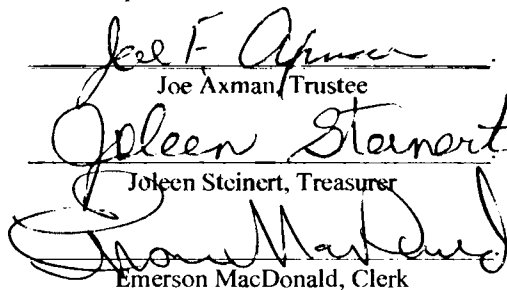 Joe F. Axman
Joe Axman, Trustee
Joleen Steinert
Joleen Steinert, Treasurer
Emerson MacDonald, Clerk